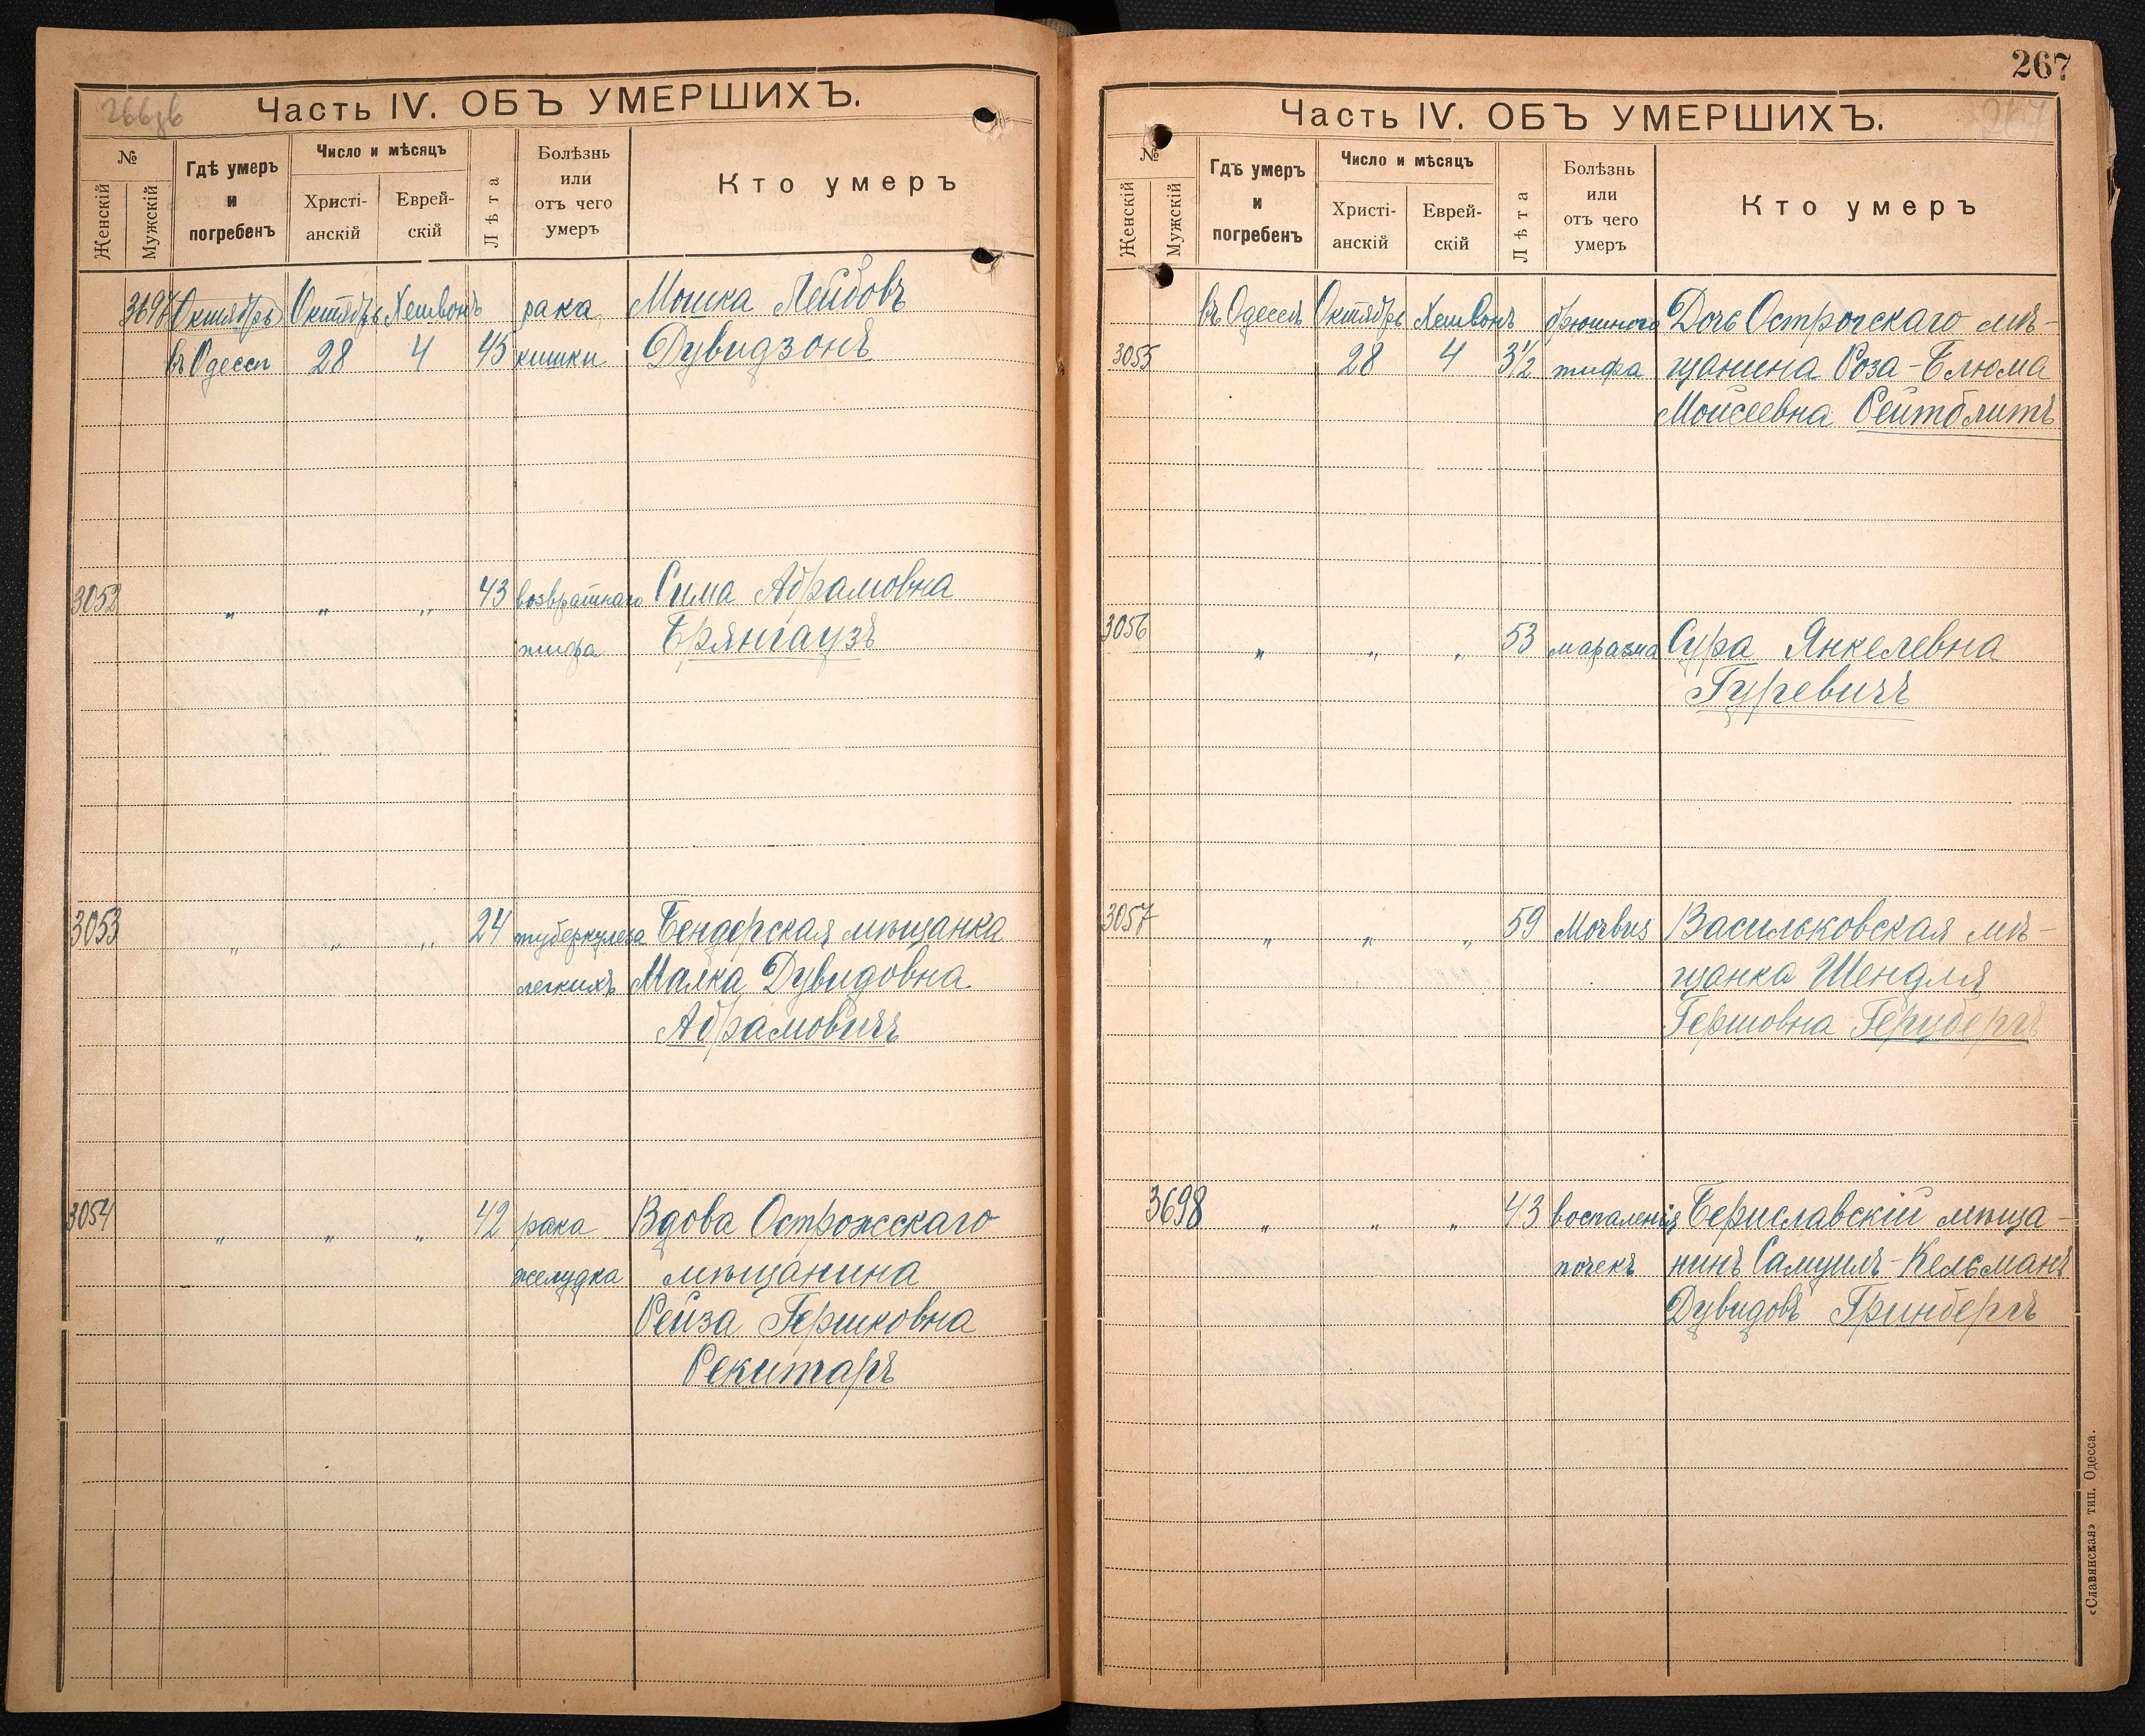 266зв
Часть IV. ОБЪ УМЕРШИХЪ.
№
Женскій
Мужскій
Гдѣ умеръ
и
погребенъ
Число и мѣсяцъ
Христі-
анскій
Еврей-
скій
Лѣта
Болѣзнь
или
отъ чего
умеръ
Кто умеръ
3697 Октябрь Октябрь Хешвонъ рака Мошка Лейбовъ
въ Одессѣ 28 4 45 кишки Дувидзонъ
3052 „ „ „ 43 возвратнаго Сима Абрамовна
тифа Брянгаузъ
3053 „ „ „ 24 туберкулеза Бендерская мѣщанка
легкихъ Малка Дувидовна
Абрамовичъ
3054 „ „ „ 42 рака Вдова Острожскаго
желудка мѣщанина
Рейза Гершковна
Рекитаръ
267
267
Часть IV. ОБЪ УМЕРШИХЪ.
№
Женскій
Мужскій
Гдѣ умеръ
и
погребенъ
Число и мѣсяцъ
Христі-
анскій
Еврей-
скій
Лѣта
Болѣзнь
или
отъ чего
умеръ
Кто умеръ
въ Одессѣ Октябрь Хешвонъ брюшного Дочь Острогскаго мѣ-
3055 28 4 3½ тифа щанина Роза-Блюма
Моисеевна Рейтблитъ
3056 „ „ „ 53 маразма Сура Янкелевна
Гуревичъ
3057 „ „ „ 59 Morbus Васильковская мѣ-
щанка Шендля
Гершовна Герцбергъ
3698 „ „ „ 43 воспаленія Бериславскій мѣща-
почекъ нинъ Самуилъ-Кельманъ
Дувидовъ Гринбергъ
«Славянская» тип. Одесса.